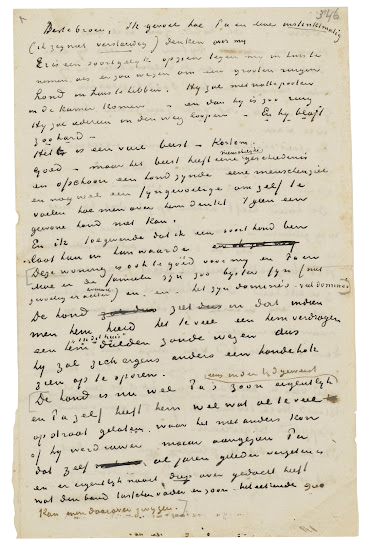 346
Beste broer, Ik gevoel hoe Pa en Moe instinktmatig
(ik zeg niet verstandig) denken over my
Er is een soortgelyk opzien tegen my in huis te
nemen als er zou wezen om een grooten ruigen
hond in huis te hebben. Hy zal met natte pooten
in de kamer komen – en dan hy is zoo ruig.
Hy zal iedereen in den weg loopen – En hy blaft
zoo hard –
Het is een vuil beest – Kortom.
Goed – maar het beest heeft eene menschelyke geschiedenis
en ofschoon een hond zynde eene menschenziel
en nog wel een fyngevoelige om zelf te
voelen hoe men over hem denkt, 't geen een
gewone hond niet kan.
En ik toegevende dat ik een soort hond ben
laat hun in hun waarde
Deze woning is ook te goed voor my en Pa en
Moe en de familie zyn zoo byster fyn (niet
gevoelig echter) en – en – het zyn dominés – veel dominés
De hond ziet dus in dat indien
men hem hield het te veel een hem verdragen
een hem dulden zoude wezen "in dit huis" dus
hy zal zich ergens anders een hondehok
zien op te sporen.
De hond is nu wel Pa's zoon eigentlyk een ouder tyd geweest
en Pa zelf heeft hem wel wat al te veel
op straat gelaten waar het niet anders kon
of hy werd ruwer maar aangezien Pa
dat zelf al jaren geleden vergeten is
en er eigentlyk nooit diep over gedacht heeft
wat den band tusschen vader en zoon beteekende
kan men daarover zwygen.